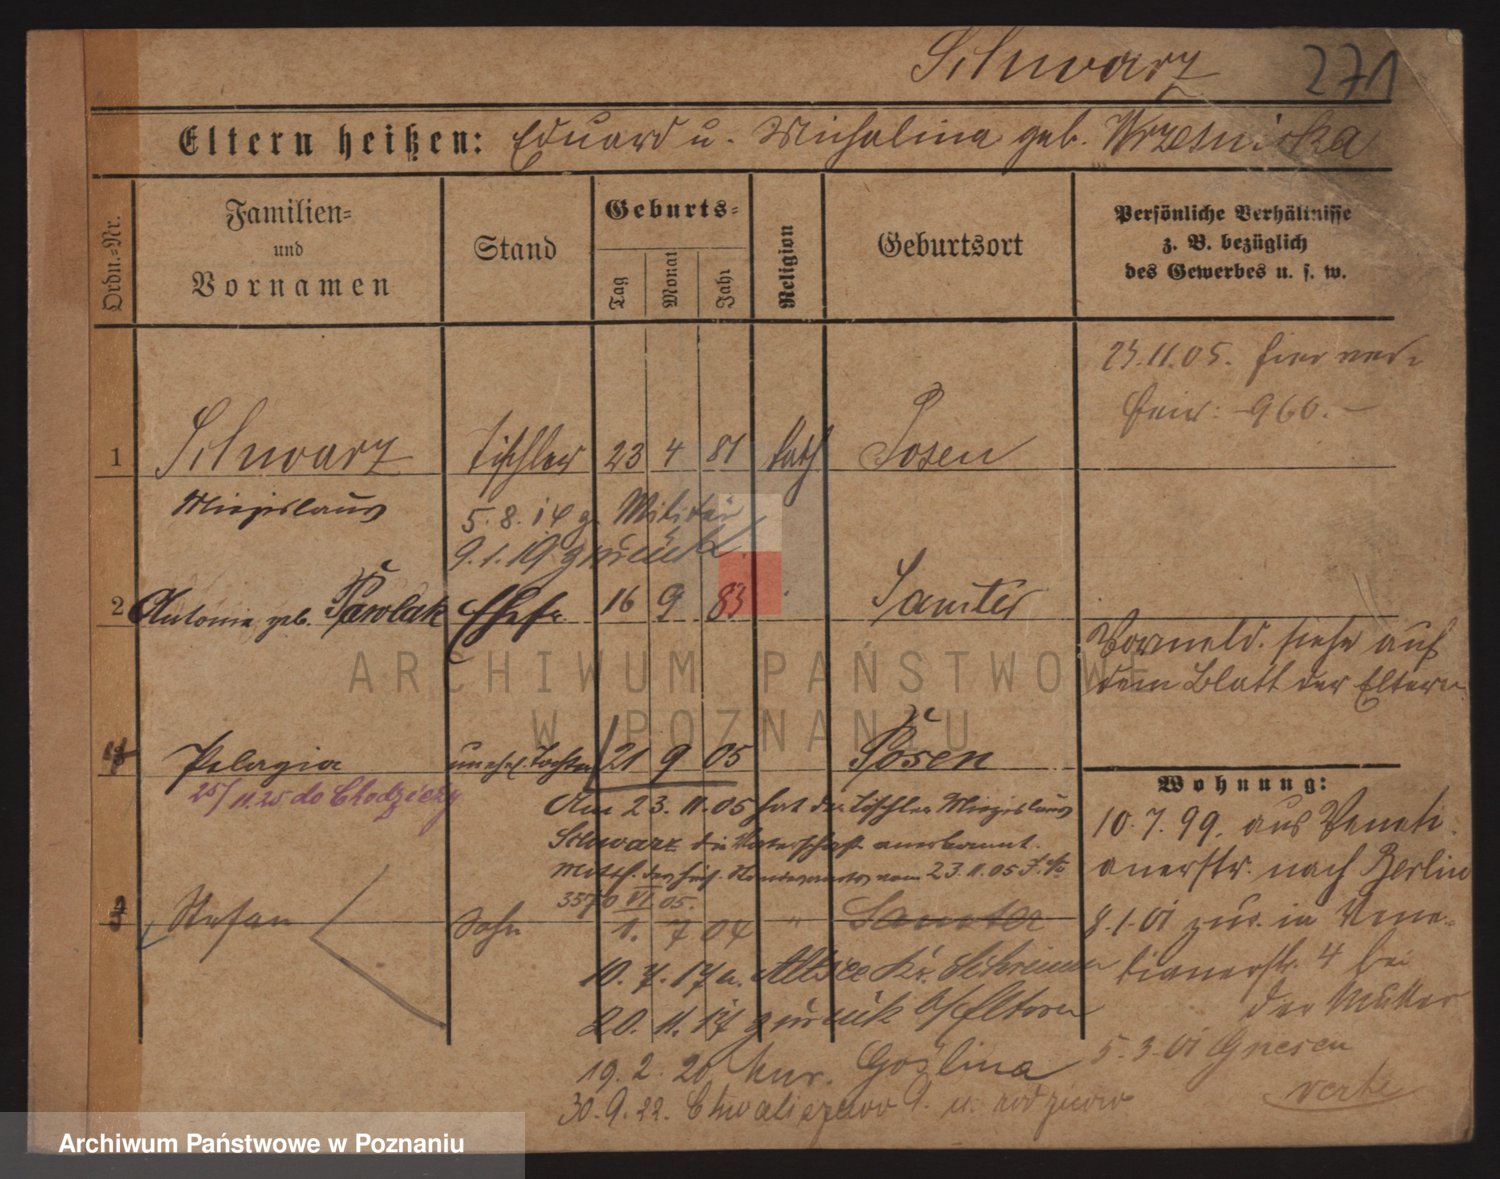 Schwarz 271
Eltern heißen: Eduard u. Michalina geb. Wrzesnicka
Ordn.=Nr.
Familien=
und
Vornamen
Stand
Geburts=
Tag
Monat
Jahr
Religion
Geburtsort
Persönliche Verhältnisse
z. B. bezüglich
des Gewerbes u. s. w.
23.11.05. hier ver=
heir: 960.
1 Schwarz Tischler 23 4 81 kath Posen
Miezislaus
5.8.14 z. Militär
9.1.19 zurück
2 Antonie geb. Pawlak Ehefr. 16 9 83 Samter
Vormeld. siehe auf
dem Blatt der Eltern
Pelagia unehel. Tochter 21 9 05 Posen
25/11.25 do Chodzieży
Am 23.11.05 hat der Tischler Miezislaus
Schwarz die Vaterschaft anerkannt.
3570 VI. 05.
Stefan Sohn 1. 7 04 " Samter
10.7.17 n. Kr. Schrimm
20.11.17 zurück Eltern
19.2.20 Mur. Goślina
30.9.22. Chwaliszewo u. rodziców
Wohnung:
10.7.99. aus Veneti
anerstr. nach Berlin
8.1.01 zur. in Vene=
tianerstr. 4 bei
der Mutter
5.3.01 Gnesen
verte
ARCHIWUM PAŃSTWOWE
W POZNANIU
Archiwum Państwowe w Poznaniu